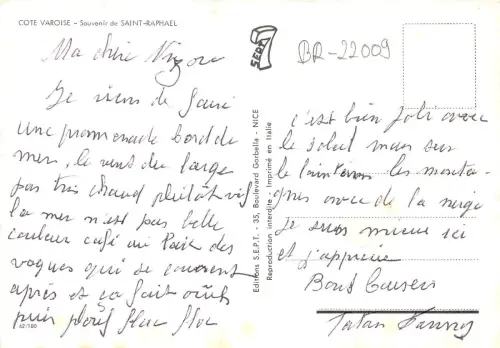 COTE VAROISE - Souvenir de SAINT-RAPHAEL
SEPT
BR-22009
Ma chère
Je viens de faire
une promenade bord de
mer, le vent du large
pas très chaud plutôt vif
la mer n'est pas belle
couleur café au lait des
vagues qui se courent
après et ça fait
puis plouf flac floc
62/180
Editions S.E.P.T. - 35, Boulevard Gorbella - NICE
Reproduction interdite - Imprimé en Italie
c'est bien joli avec
le soleil mais sur
le lointain les monta-
gnes avec de la neige
Je suis mieux ici
et j'apprécie
Bons Baisers
Tatan